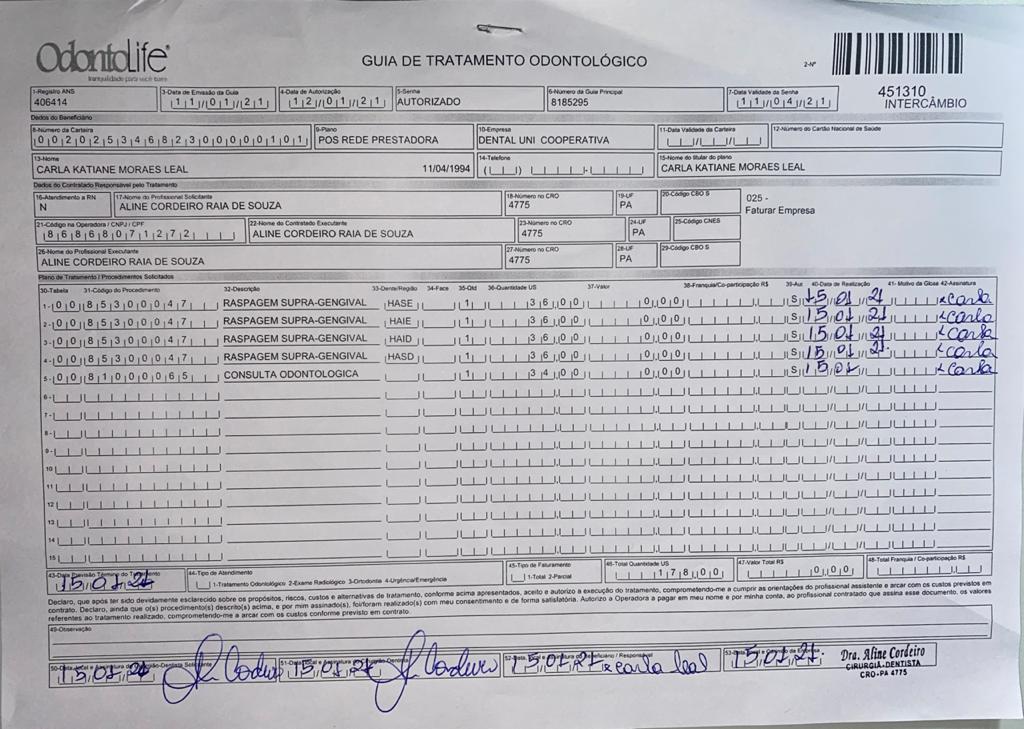 OdontoLife
tranquilidade para você bem
GUIA DE TRATAMENTO ODONTOLÓGICO
2-Nº
451310
INTERCÂMBIO
1-Registro ANS
406414
3-Data de Emissão da Guia
11/01/21
4-Data de Autorização
12/01/21
5-Senha
AUTORIZADO
6-Número da Guia Principal
8185295
7-Data Validade da Senha
11/04/21
Dados do Beneficiário
8-Número da Carteira
00202534682300000101
9-Plano
POS REDE PRESTADORA
10-Empresa
DENTAL UNI COOPERATIVA
11-Data Validade da Carteira
12-Número do Cartão Nacional de Saúde
13-Nome
CARLA KATIANE MORAES LEAL 11/04/1994
14-Telefone
15-Nome do titular do plano
CARLA KATIANE MORAES LEAL
Dados do Contratado Responsável pelo Tratamento
16-Atendimento a RN
N
17-Nome do Profissional Solicitante
ALINE CORDEIRO RAIA DE SOUZA
18-Número no CRO
4775
19-UF
PA
20-Código CBO S
025 -
Faturar Empresa
21-Código na Operadora / CNPJ / CPF
86868071272
22-Nome do Contratado Executante
ALINE CORDEIRO RAIA DE SOUZA
23-Número no CRO
4775
24-UF
PA
25-Código CNES
26-Nome do Profissional Executante
ALINE CORDEIRO RAIA DE SOUZA
27-Número no CRO
4775
28-UF
PA
29-Código CBO S
Plano de Tratamento / Procedimentos Solicitados
30-Tabela 31-Código do Procedimento 32-Descrição 33-Dente/Região 34-Face 35-Qtd 36-Quantidade US 37-Valor 38-Franquia/Co-participação R$ 39-Aut 40-Data de Realização 41- Motivo da Glosa 42-Assinatura
1- 00 85300047 RASPAGEM SUPRA-GENGIVAL HASE 1 36,00 0,00 S 15 01 21 x Carla
2- 00 85300047 RASPAGEM SUPRA-GENGIVAL HAIE 1 36,00 0,00 S 15 01 21 x Carla
3- 00 85300047 RASPAGEM SUPRA-GENGIVAL HAID 1 36,00 0,00 S 15 01 21 x Carla
4- 00 85300047 RASPAGEM SUPRA-GENGIVAL HASD 1 36,00 0,00 S 15 01 21 x Carla
5- 00 81000065 CONSULTA ODONTOLOGICA 1 34,00 0,00 S 15 01 x Carla
6-
7-
8-
9-
10
11
12
13
14
15
43-Data Previsão Término do Tratamento
15 01 21
44-Tipo de Atendimento
1-Tratamento Odontológico 2-Exame Radiológico 3-Ortodontia 4-Urgência/Emergência
45-Tipo de Faturamento
1-Total 2-Parcial
46-Total Quantidade US
178,00
47-Valor Total R$
0,00
48-Total Franquia / Co-participação R$
Declaro, que após ter sido devidamente esclarecido sobre os propósitos, riscos, custos e alternativas de tratamento, conforme acima apresentados, aceito e autorizo a execução do tratamento, comprometendo-me a cumprir as orientações do profissional assistente e arcar com os custos previstos em
contrato. Declaro, ainda que o(s) procedimento(s) descrito(s) acima, e por mim assinado(s), foi/foram realizado(s) com meu consentimento e de forma satisfatória. Autorizo a Operadora a pagar em meu nome e por minha conta, ao profissional contratado que assina esse documento, os valores
referentes ao tratamento realizado, comprometendo-me a arcar com os custos conforme previsto em contrato.
49-Observação
15 01 21
15 01 21
15 01 21 x Carla Leal
15 01 21
Dra. Aline Cordeiro
CIRURGIÃ-DENTISTA
CRO-PA 4775